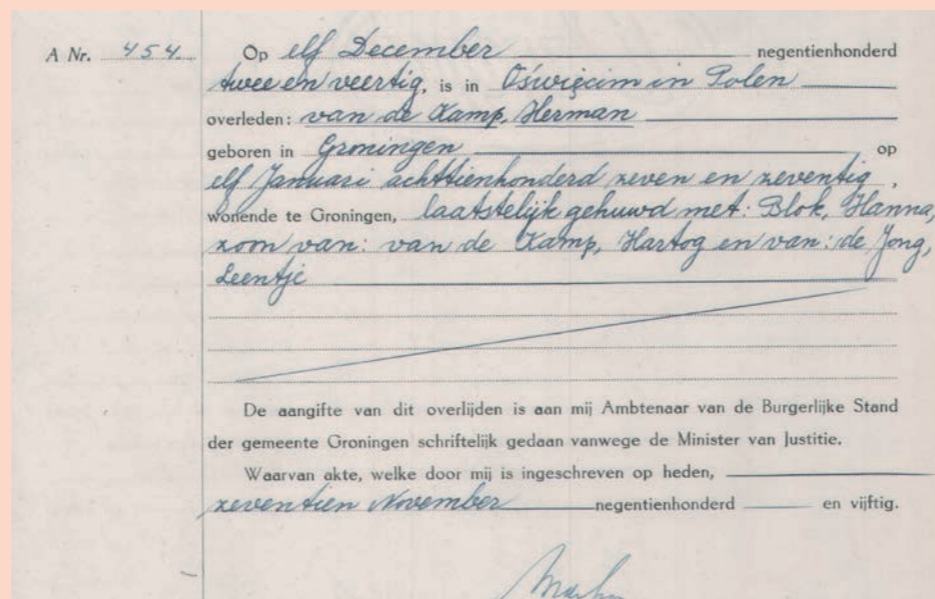 A Nr. 454. Op elf December negentienhonderd
twee en veertig, is in Oświęcim in Polen
overleden: van de Kamp, Herman
geboren in Groningen op
elf Januari achttienhonderd zeven en zeventig,
wonende te Groningen, laatstelijk gehuwd met: Blok, Hanna,
zoon van: van de Kamp, Hartog en van: de Jong,
Leentje
De aangifte van dit overlijden is aan mij Ambtenaar van de Burgerlijke Stand
der gemeente Groningen schriftelijk gedaan vanwege de Minister van Justitie.
Waarvan akte, welke door mij is ingeschreven op heden,
zeventien November negentienhonderd en vijftig.